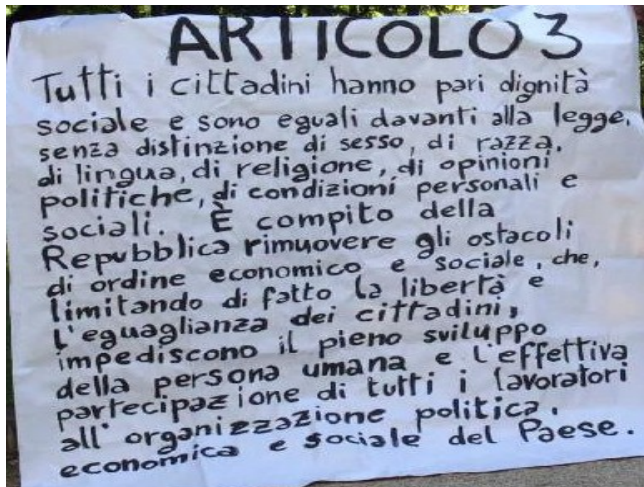 ARTICOLO 3
Tutti i cittadini hanno pari dignità
sociale e sono eguali davanti alla legge,
senza distinzione di sesso, di razza,
di lingua, di religione, di opinioni
politiche, di condizioni personali e
sociali. È compito della
Repubblica rimuovere gli ostacoli
di ordine economico e sociale, che,
limitando di fatto la libertà e
l'eguaglianza dei cittadini,
impediscono il pieno sviluppo
della persona umana e l'effettiva
partecipazione di tutti i lavoratori
all'organizzazione politica,
economica e sociale del Paese.